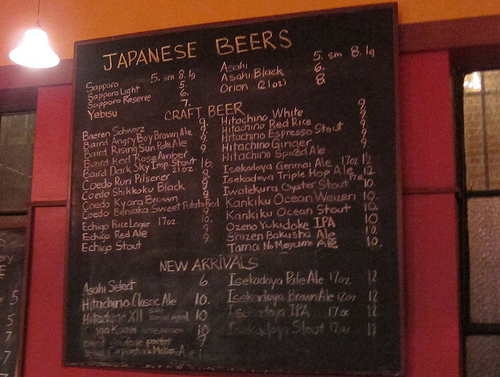 JAPANESE BEERS
Sapporo 5. sm 8. lg
Sapporo Light 5.
Sapporo Reserve 6.
Yebisu 7.
Asahi 5. sm 8. lg
Asahi Black 6.
Orion (21oz) 8.
CRAFT BEER
Baeren Schwarz 9
Baird Angry Boy Brown Ale 9
Baird Rising Sun Pale Ale 9
Baird Red Rose Amber
Baird Dark Sky Imp Stout 16
Coedo Run Pilsener 21oz
Coedo Shikkoku Black 9
Coedo Kyara Brown 9
Coedo Beniaka Sweet Potato Red
Echigo Rice Lager 17oz. 10
Echigo Red Ale 9
Echigo Stout 9
Hitachino White 9
Hitachino Red Rice 9
Hitachino Espresso Stout 9
Hitachino Ginger 9
Hitachino Spiced Ale 9
Isekadoya Genmai Ale 17oz 12
Isekadoya Triple Hop Ale 12
Iwatekura Oyster Stout 10
Kankiku Ocean Weizen 10.
Kankiku Ocean Stout 10.
Ozeno Yukidoke IPA 10
Shizen Bakushu Ale 10
Tama No Megumi Ale 10.
NEW ARRIVALS
Asahi Select 6
Hitachino Classic Ale 10.
Hitachino XII 10.
10
9
Isekadoya Pale Ale 17oz 12
Isekadoya Brown Ale 17oz 12
Isekadoya IPA 17oz 12
Isekadoya Stout 17oz 12
5
5
7
7